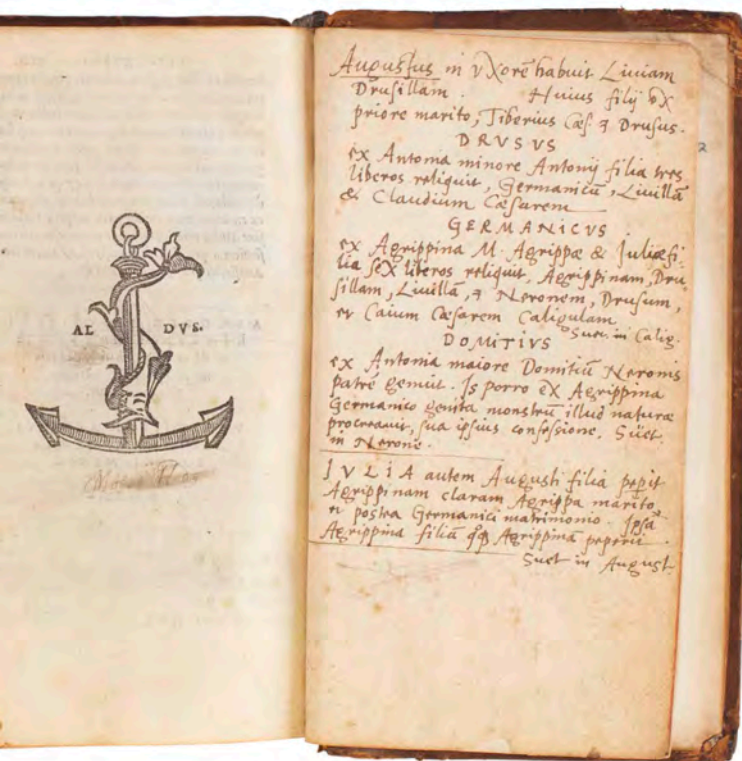 AL DVS.
Augustus in vXorē habuit Liuiam
Drusillam. Huius filij eX
priore marito, Tiberius Cæs. & Drusus.
DRVSVS
ex Antonia minore Antonij filia tres
liberos reliquit, Germanicū, Liuillā
& Claudium Cæsarem
GERMANICVS
ex Agrippina M. Agrippæ & Juliæ fi-
lia seX liberos reliquit, Agrippinam, Dru
sillam, Liuillā, & Neronem, Drusum,
et Caium Cæsarem Caligulam
Suet. in Calig.
DOMITIVS
ex Antonia maiore Domitiū Neronis
patrē genuit. Is porro eX Agrippina
Germanico genita monstrū illud naturæ
procreauit, sua ipsius confessione. Suet.
in Nerone.
JVLIA autem Augusti filia pepit
Agrippinam claram Agrippa marito
et postea Germanici matrimonio. Ipsa
Agrippina filiā Agrippinā peperit.
Suet in August.
2